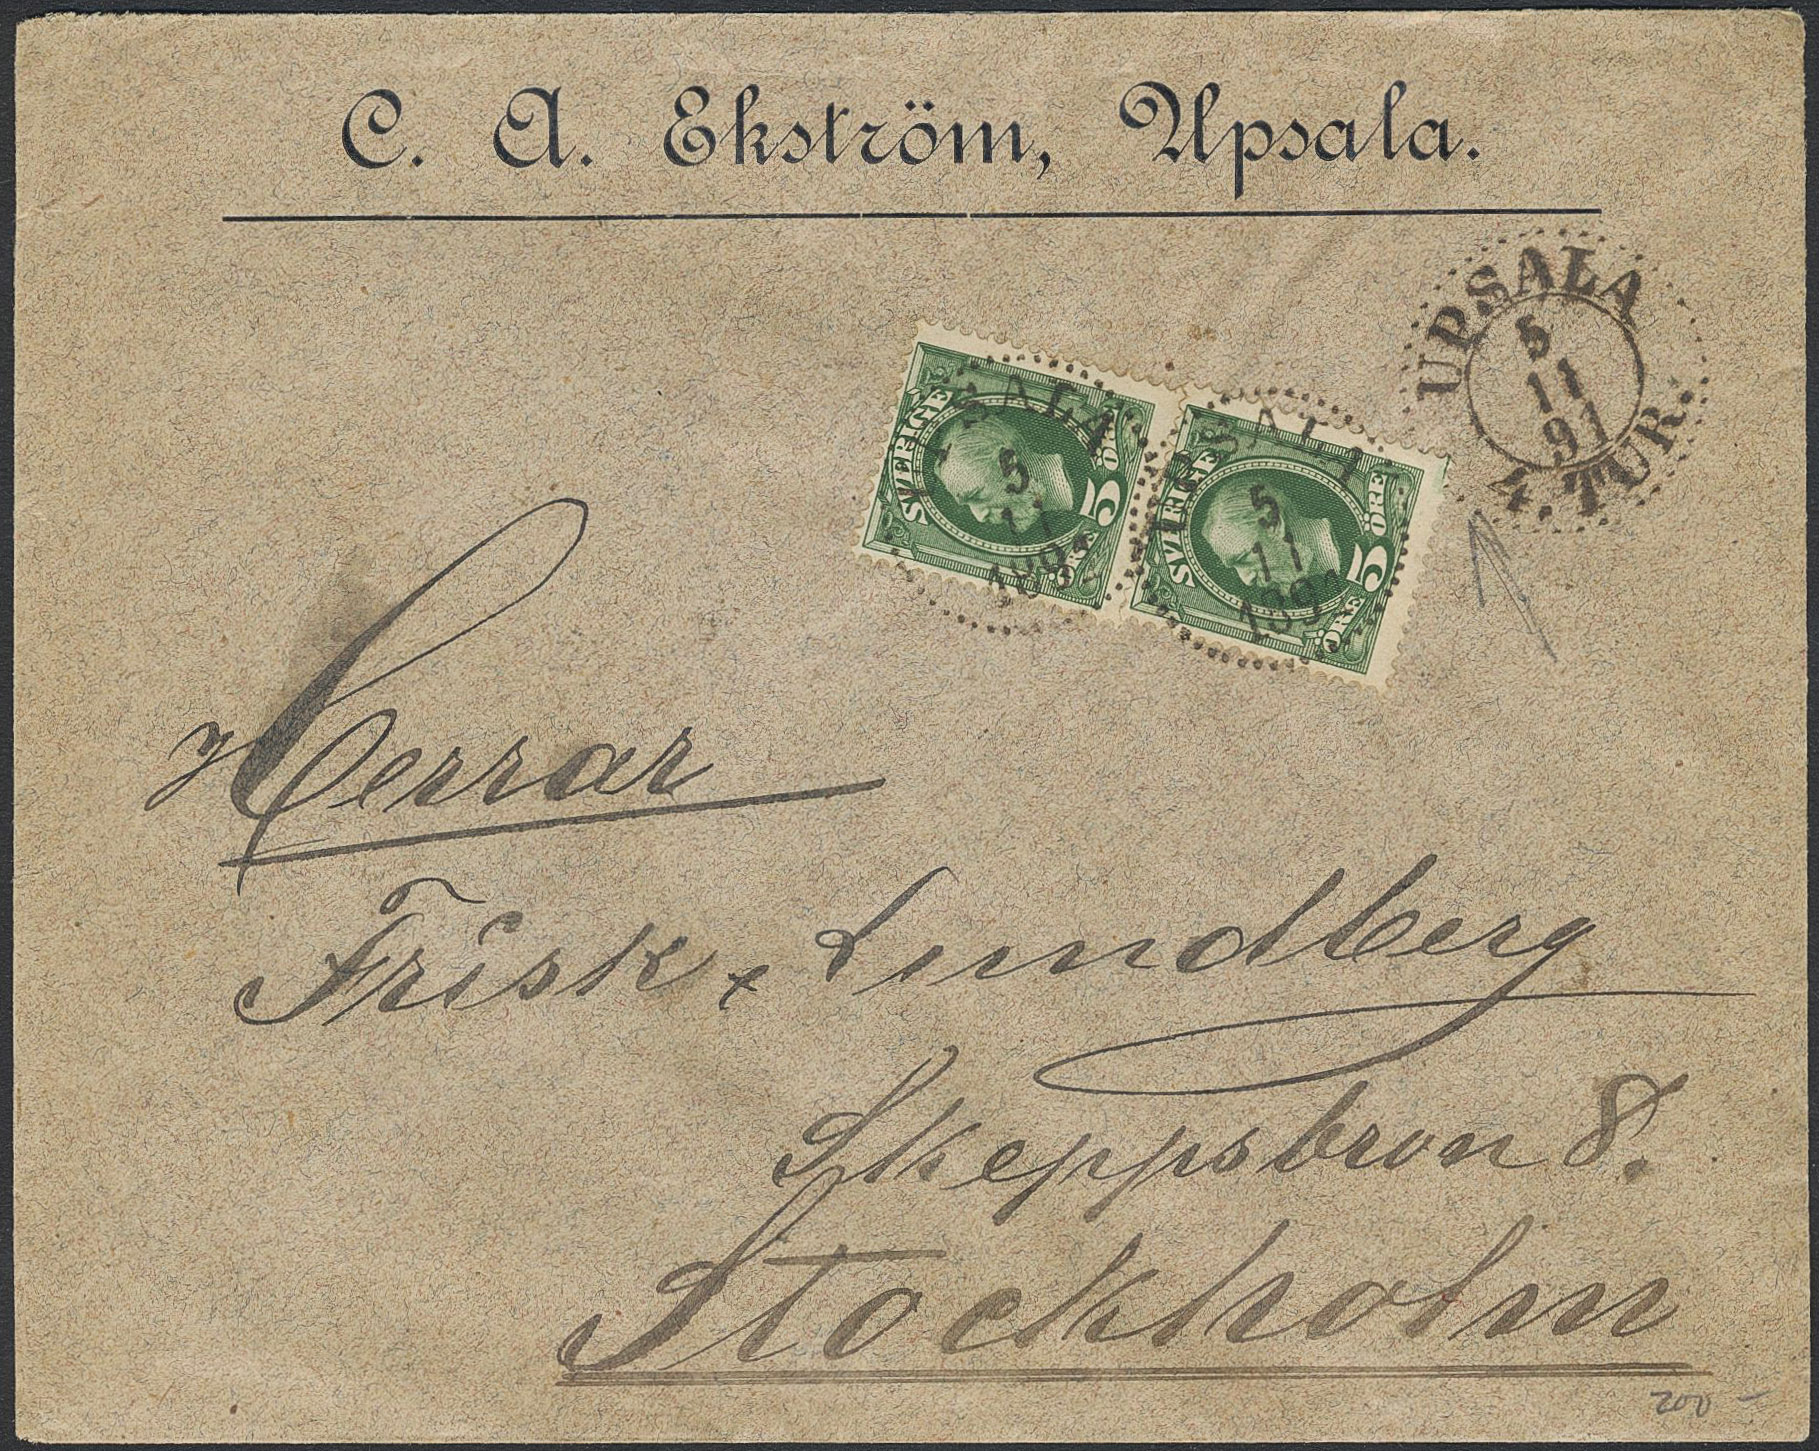 C. A. Ekström, Upsala.
UPSALA
5
11
91
4. TUR.
SVERIGE
5 ÖRE
ÖRE
SALA
5
11
1891
SVERIGE
5 ÖRE
ÖRE
UPSALA
5
11
1891
Herrar
Frisk & Lundberg
Skeppsbron 8.
Stockholm
200 –